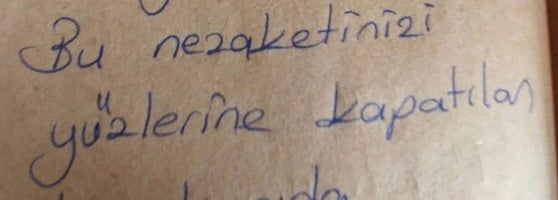 Bu nezaketinizi
yüzlerine kapatılan